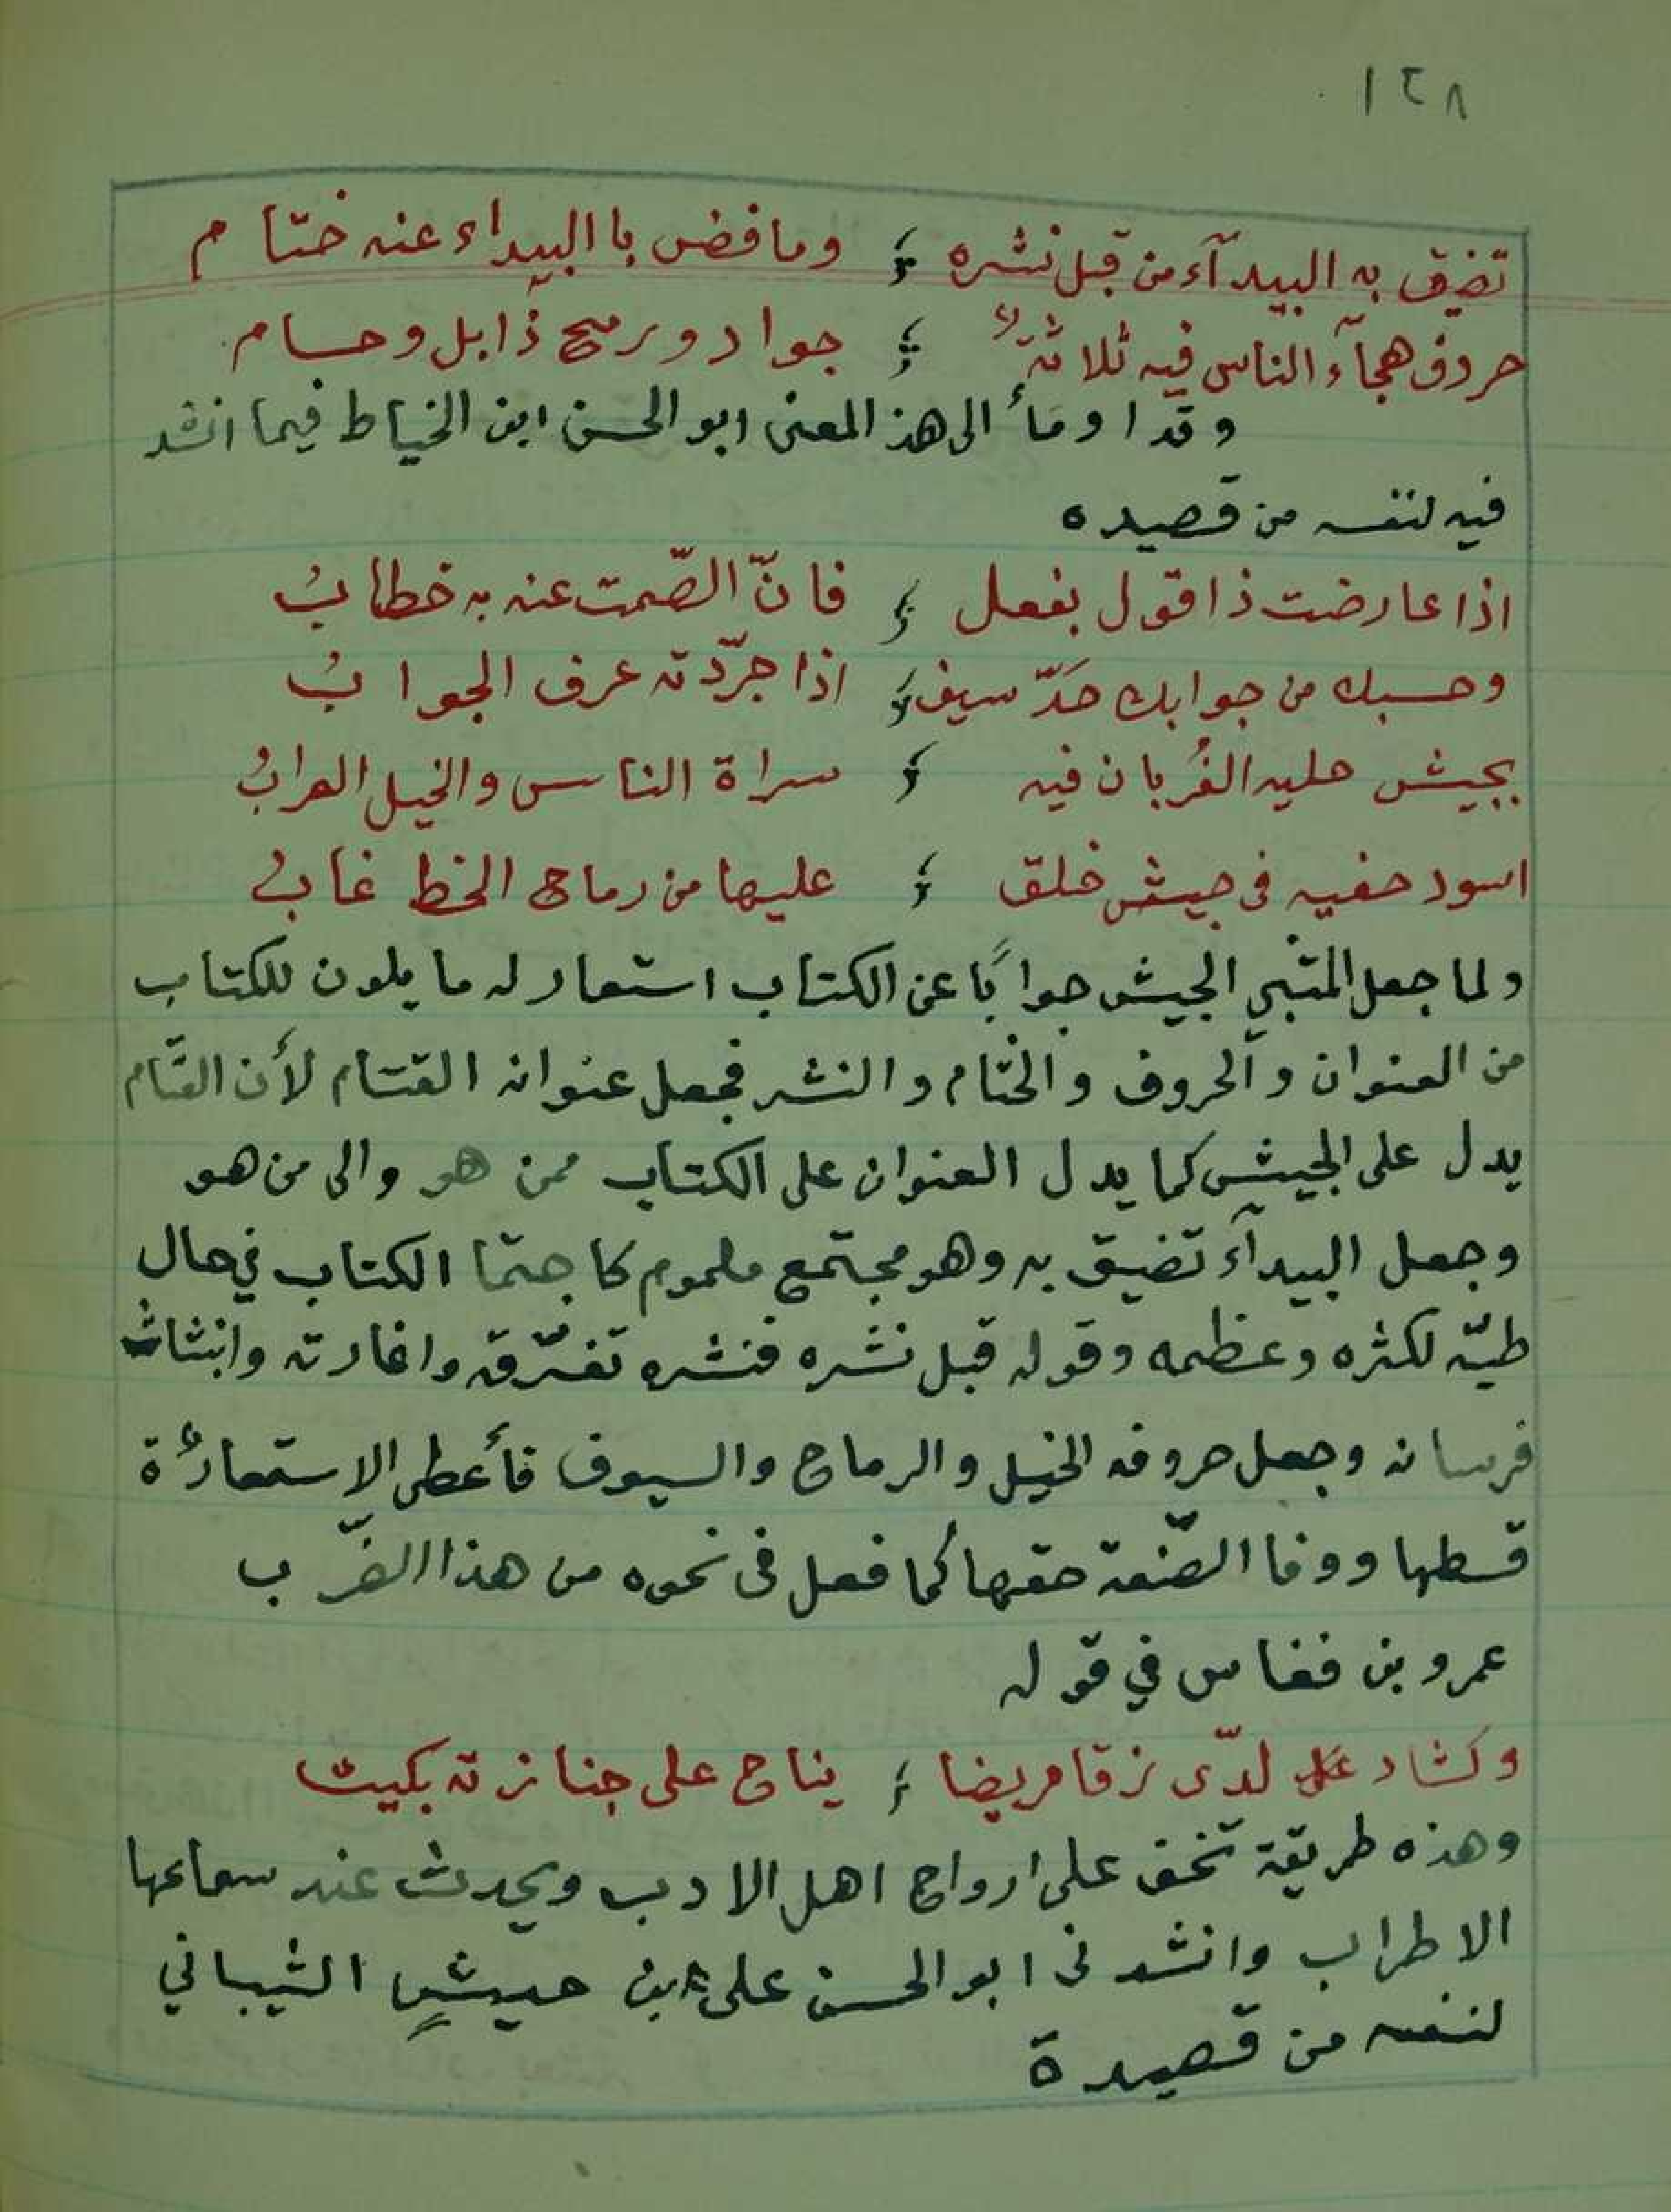 ١٢٨
تضيق به البيدآء من قبل نشره ؛ وما فض با البيداء عنه ختام
حروف هجآء الناس فيه ثلاثة ؛ جواد ورمح ذابل وحسام
وقد اومأ الى هذ المعنى ابو الحسن ابن الخياط فيما انشد
فيه لنفسه من قصيده
اذا عارضت ذا قول بفعل ؛ فانّ الصّمت عنه به خطابُ
وحسبك من جوابك حَدّ سيف ؛ اذا جرّدته عرف الجوابُ
بجيش حليه الغُربان فيه ؛ سراة الناس والخيل العرابُ
اسود حفيه فى جيش خلق ؛ عليها من رماح الخط غابُ
ولما جعل المتنبي الجيش جوابًا عن الكتاب استعار له ما يلون للكتاب
من العنوان والحروف والختام والنشر فجعل عنوانه القتام لأن القتام
يدل على الجيش كما يدل العنوان على الكتاب ممن هو والى من هو
وجعل البيدآء تضيق به وهو مجتمع ملموم كاجتما الكتاب في حال
طيّه لكثره وعظمه وقوله قبل نشره فنشره تفرّقه واغارته وانبثاث
فرسانه وجعل حروفه الخيل والرماح والسيوف فأعطى الاستعارة
قسطها ووفا الصّنعة حقها كما فعل فى نحوه من هذا الضّرب
عمرو بن فغاس في قوله
وكشاد لدّى زقا مريضا ؛ يناح على جنازته بكيت
وهذه طريقة تخف على ارواح اهل الادب ويحدث عند سماعها
الاطراب وانشدنى ابو الحسن على ابن حبيشٍ الشيباني
لنفسه من قصيدة